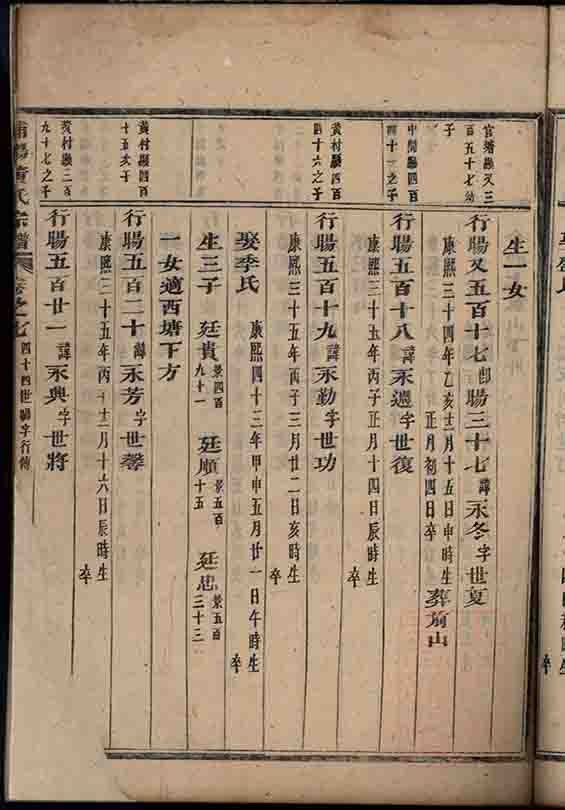 生一女
官塘賜又三百五十七幼子
行賜又五百十七即賜三十七諱永冬字世夏
康熙三十四年乙亥十一月十五日申時生
正月初四日卒
葬前山
四百四十三之子
行賜五百十八諱永遇字世復
康熙三十五年丙子正月十四日辰時生
卒
黃村賜四百四十六之子
行賜五百十九諱永勤字世功
康熙三十五年丙子三月廿二日亥時生
卒
娶李氏
康熙四十三年甲申五月廿一日午時生
卒
生三子 廷貴景四百九十一 廷順景五百十五 廷忠景五百三十三
一女適西塘下方
黃村賜四百十五次子
行賜五百二十諱永芳字世馨
康熙三十五年丙子十一月十六日辰時生
卒
黃村賜三百九十七之子
行賜五百廿一諱永興字世將
黃氏宗譜 卷之七 四十四世賜字行傳